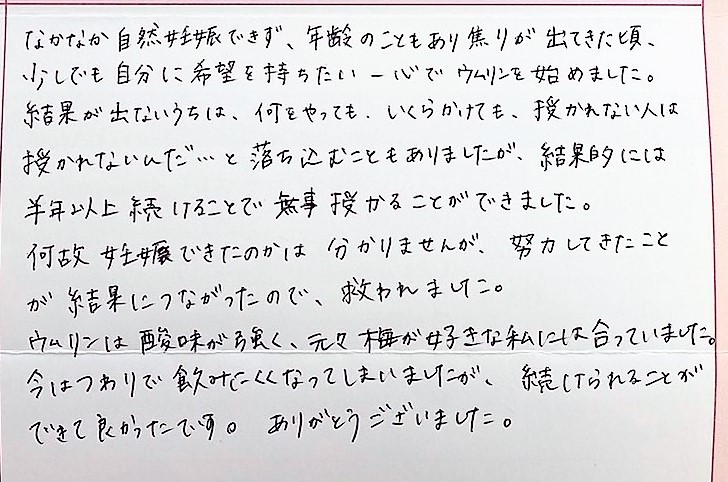 なかなか自然妊娠できず、年齢のこともあり焦りが出てきた頃、
少しでも自分に希望を持ちたい一心でウムリンを始めました。
結果が出ないうちは、何をやっても、いくらかけても、授かれない人は
授かれないんだ…と落ち込むこともありましたが、結果的には
半年以上続けることで無事授かることができました。
何故妊娠できたのかは分かりませんが、努力してきたこと
が結果につながったので、救われました。
ウムリンは酸味が強く、元々梅が好きな私には合っていました。
今はつわりで飲みにくくなってしまいましたが、続けられることが
できて良かったです。ありがとうございました。